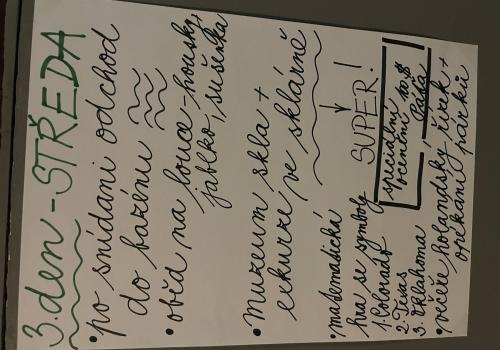 3. den - STŘEDA
• po snídani odchod
do bazénu
• oběd na louce - housky,
jablko, sušenka
• muzeum skla +
exkurze ve sklárně
• matematická
hra se symboly
1. Colorado
2. Texas
3. Oklahoma
SUPER!
speciální
ocenění
Páťa
• večeře holandský řízek +
opékání párků